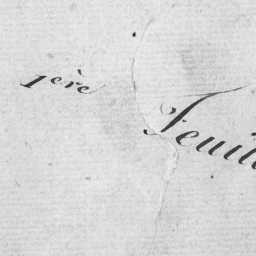 1ère Feuil